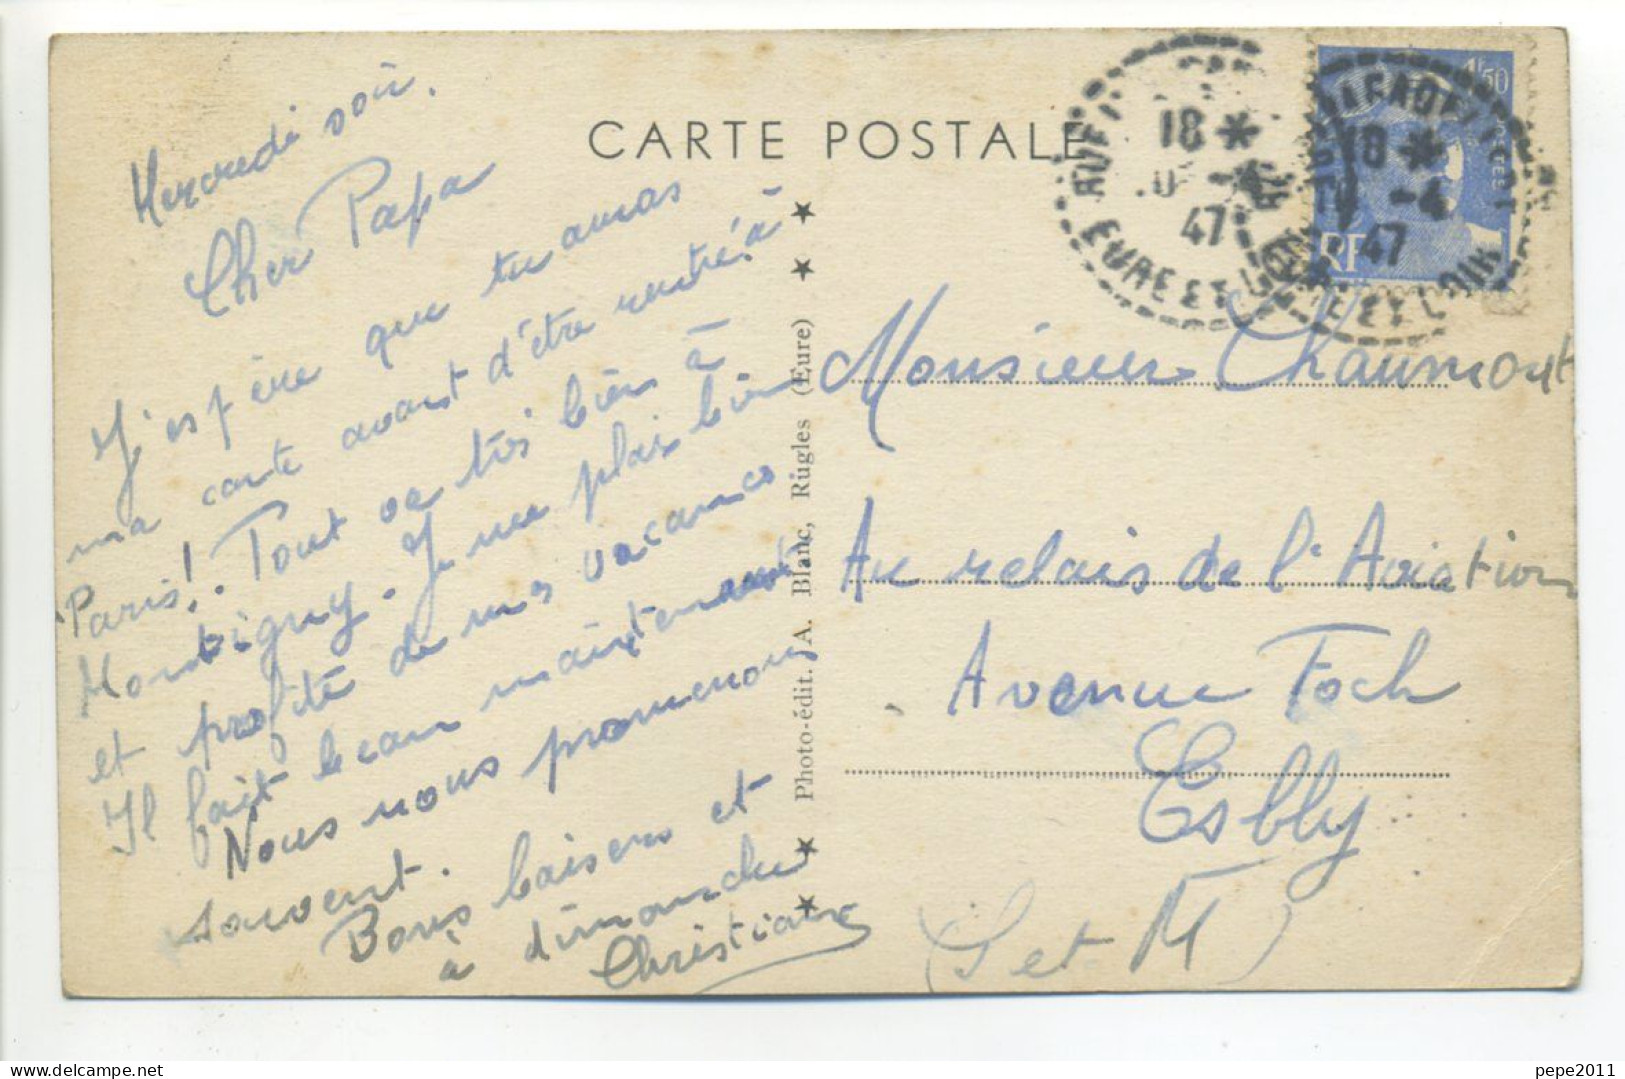 CARTE POSTALE
Mercredi soir.
Cher Papa
J'espère que tu auras
ma carte avant d'être rentré à
Paris!. Tout va très bien à
Montigny. Je me plais bien
et profite de mes vacances
Il fait beau maintenant
Nous nous promenons
souvent.
Bons baisers et
à dimanche
Christiane
Photo-édit. A. Blanc, Rugles (Eure)
18 *
-4
47
EURE ET LOIR
18 *
-4
47
EURE ET LOIR
4f50
RF
Monsieur Chaumont
Au relais de l'Aviation
Avenue Foch
Esbly
(S et M)
pepe2011